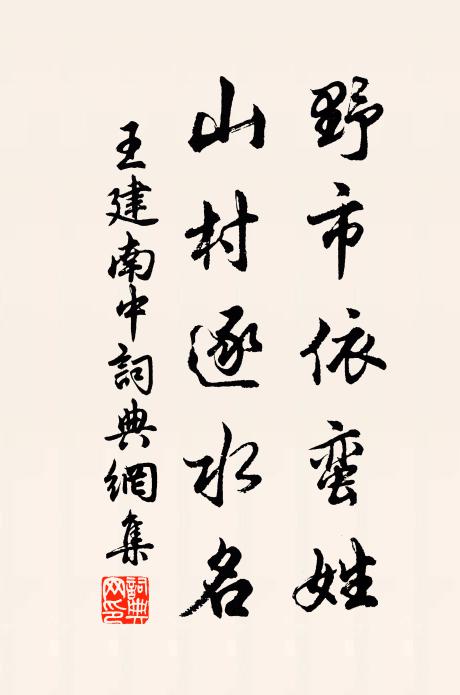 野市依蛮姓
山村逐水名
王建南中詞典網集
詞典網印